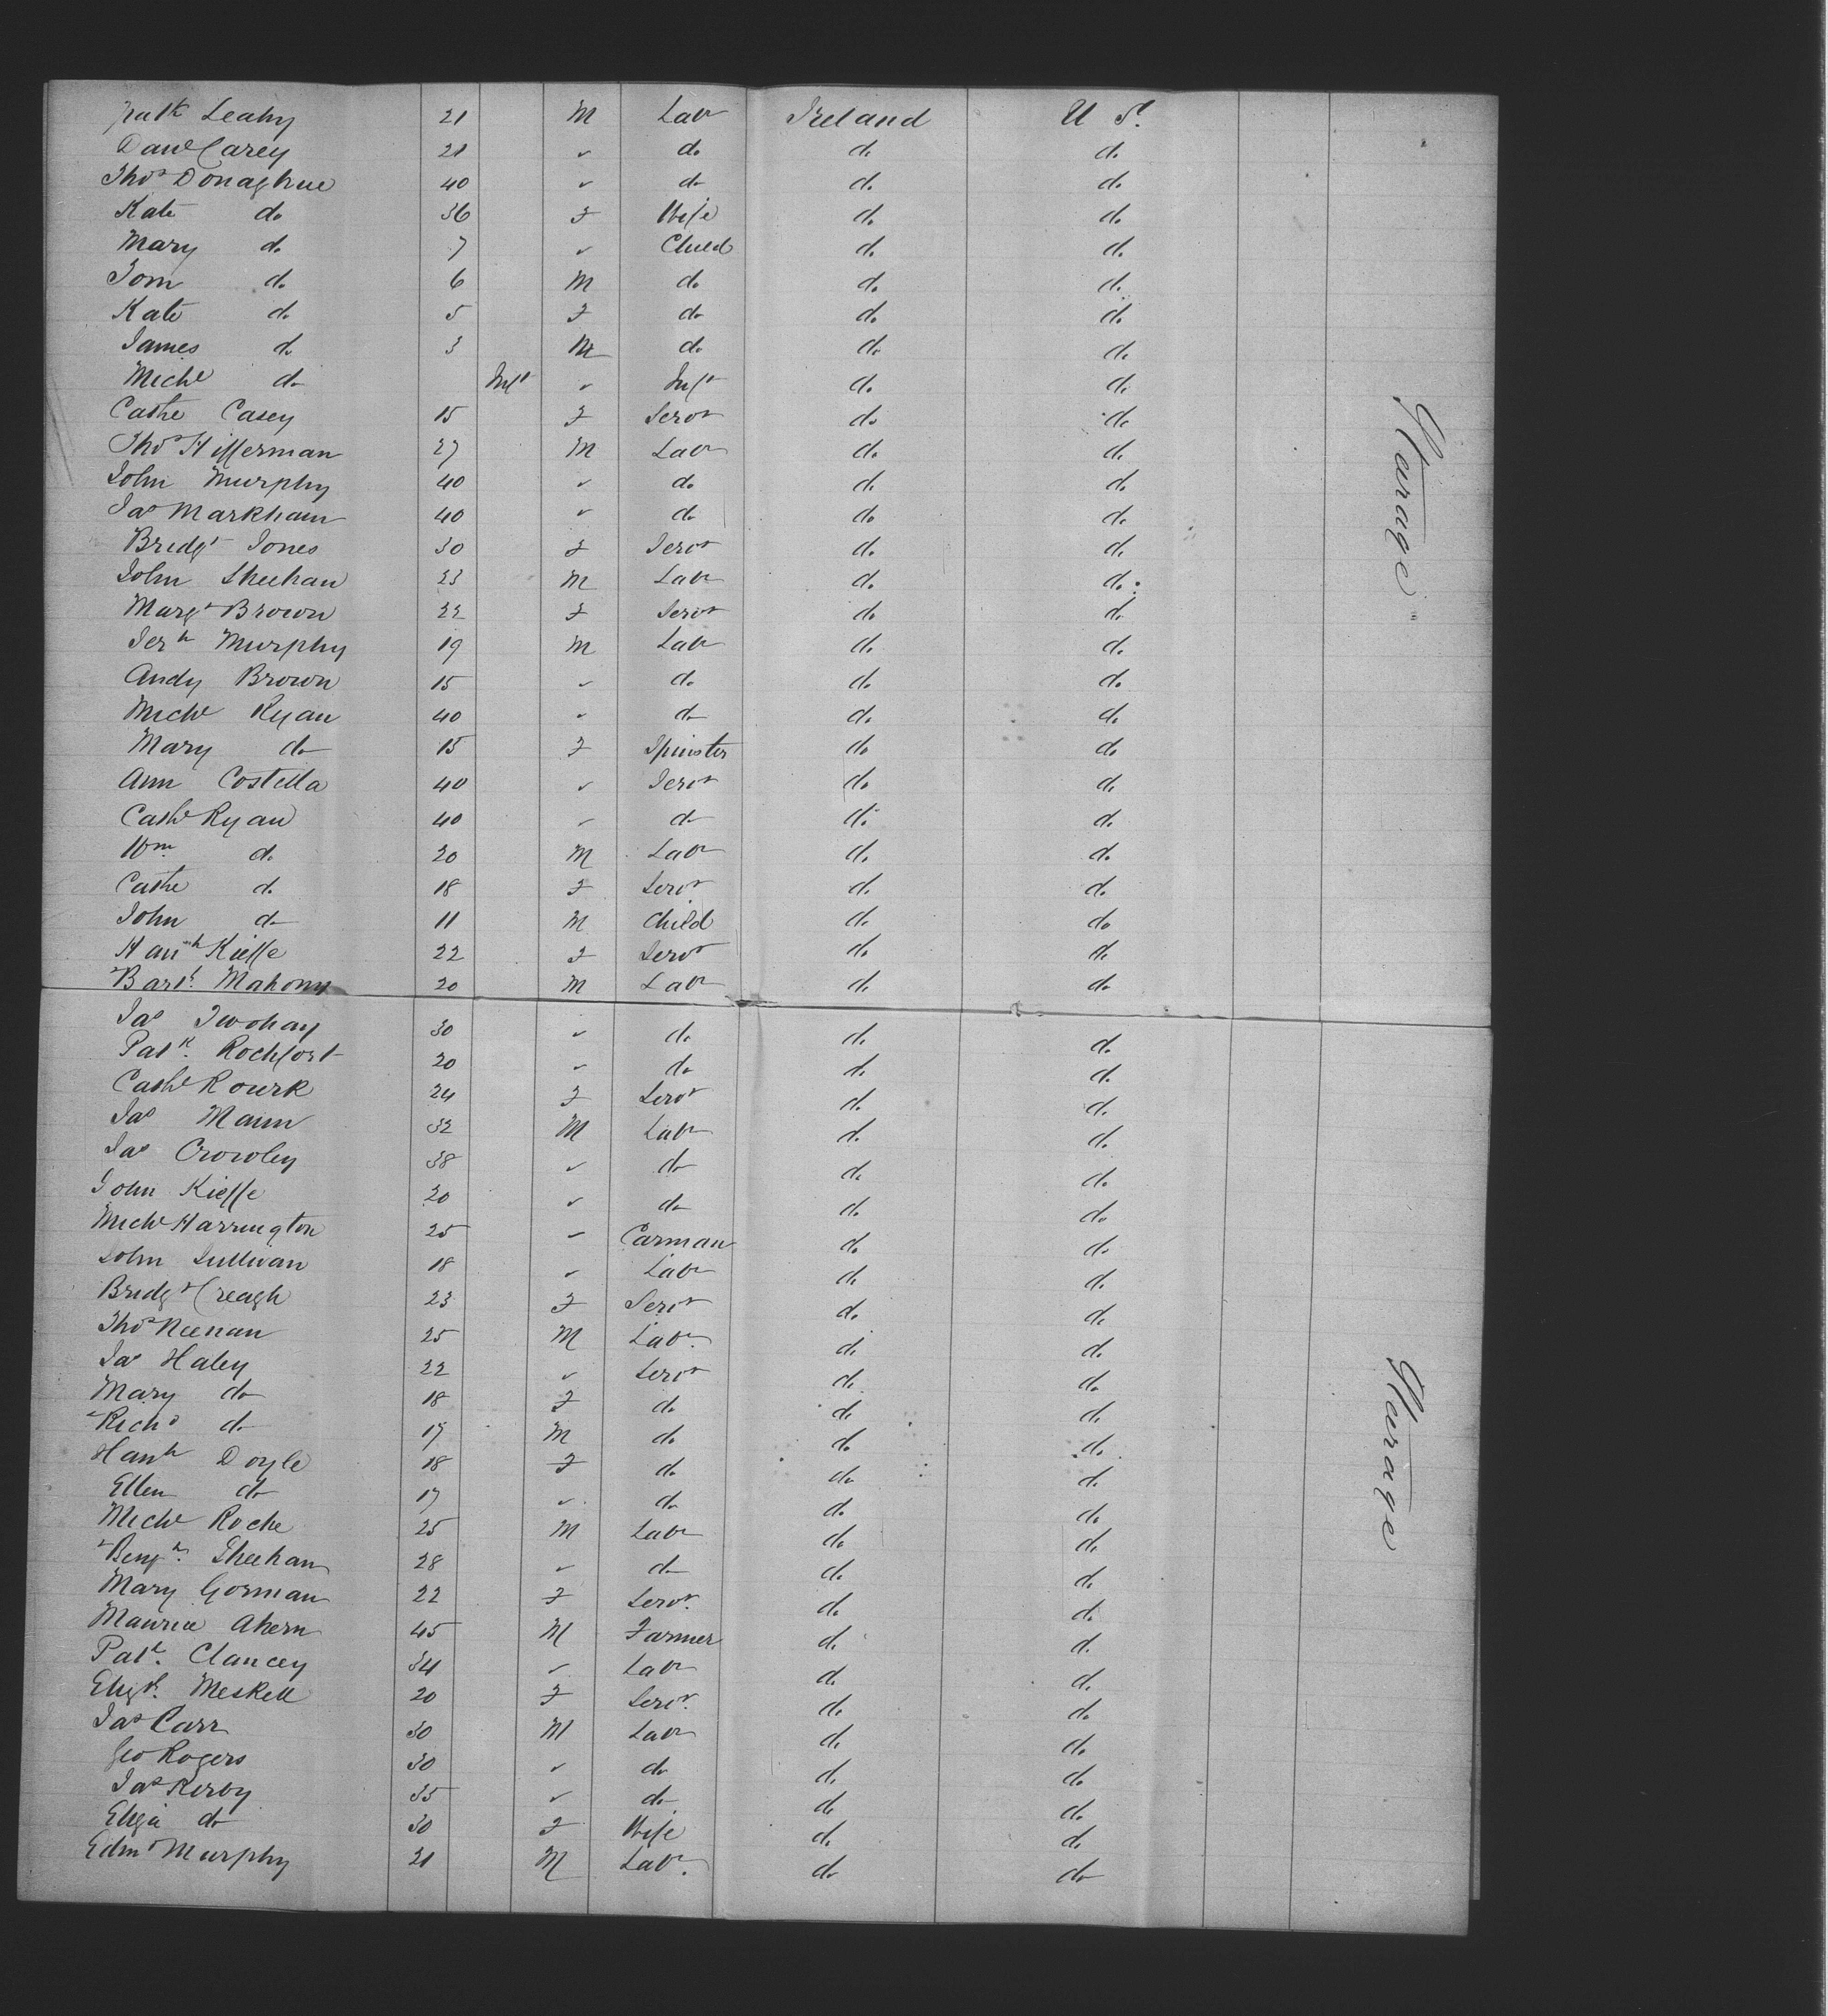 Patk Leahy 21 M Labr Ireland U S.
Danl Carey 21 " do do do
Thos Donaghue 40 " do do do
Kate do 36 F Wife do do
Mary do 7 " Child do do
Tom do 6 M do do do
Kate do 5 F do do do
James do 3 M do do do
Michl do Inft " Inft do do
Cathe Casey 15 F Servt do do
Thos Hifferman 27 M Labr do do
John Murphy 40 " do do do
Jas Markham 40 " do do do
Bridgt Jones 30 F Servt do do
John Sheehan 23 M Labr do do
Margt Brown 22 F Servt do do
Jerh Murphy 19 M Labr do do
Andy Brown 15 " do do do
Michl Ryan 40 " do do do
Mary do 15 F Spinster do do
Ann Costella 40 " Servt do do
Cathe Ryan 40 " do do do
Wm do 20 M Labr do do
Cathe do 18 F Servt do do
John do 11 M Child do do
Hanh Kieffe 22 F Servt do do
Bart. Mahony 20 M Labr do do
Jas Twohay 30 " do do do
Patk. Rochfort 20 " do do do
Cathe Rourk 24 F Servt do do
Jas Mann 32 M Labr do do
Jas Crowley 38 " do do do
John Kieffe 20 " do do do
Michl Harrington 25 " Carman do do
John Sullivan 18 " Labr do do
Bridgt Creagh 23 F Servt do do
Thos Neenan 25 M Labr. do do
Jas Haley 22 " Servt do do
Mary do 18 F do do do
Richd do 17 M do do do
Hanh Doyle 18 F do do do
Ellen do 17 " do do do
Michl Roche 25 M Labr do do
Benjn. Sheehan 28 " do do do
Mary Gorman 22 F Servt. do do
Maurice Ahern 45 M Farmer do do
Patk. Clancey 34 " Labr do do
Elizth. Meskell 20 F Servt. do do
Jas Carr 30 M Labr do do
Geo Rogers 30 " do do do
Jas Kerby 35 " do do do
Eliza do 30 F Wife do do
Edmd Murphy 21 M Labr. do do
Steerage
Steerage